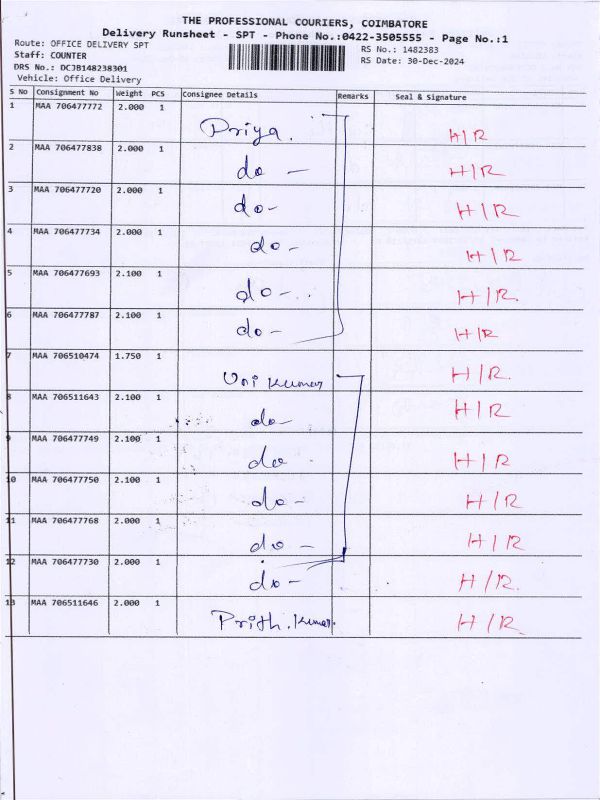 THE PROFESSIONAL COURIERS, COIMBATORE
Delivery Runsheet - SPT - Phone No.:0422-3505555 - Page No.:1
Route: OFFICE DELIVERY SPT
Staff: COUNTER
DRS No.: DCJB148238301
Vehicle: Office Delivery
RS No.: 1482383
RS Date: 30-Dec-2024
S No Consignment No Weight PCS Consignee Details Remarks Seal & Signature
1 MAA 706477772 2.000 1 Priya. H/R
2 MAA 706477838 2.000 1 do - H/R
3 MAA 706477720 2.000 1 do- H/R
4 MAA 706477734 2.000 1 do - H/R
5 MAA 706477693 2.100 1 do - H/R.
6 MAA 706477787 2.100 1 do - H/R
7 MAA 706510474 1.750 1 Uni Kumar H/R.
8 MAA 706511643 2.100 1 do- H/R
9 MAA 706477749 2.100 1 do H/R
10 MAA 706477750 2.100 1 do - H/R
11 MAA 706477768 2.000 1 do - H/R
12 MAA 706477730 2.000 1 do - H/R.
13 MAA 706511646 2.000 1 Prith. Kumar. H/R